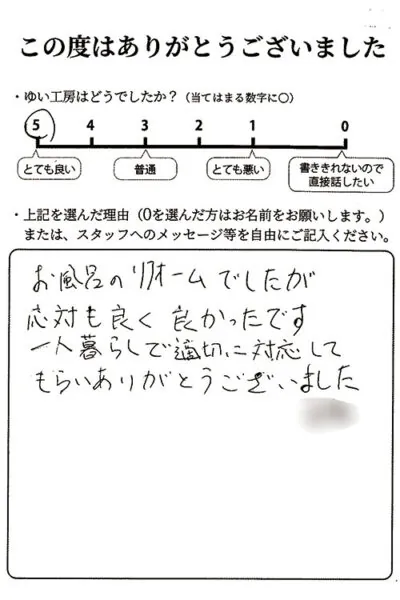 この度はありがとうございました
・ゆい工房はどうでしたか？（当てはまる数字に〇）
5 4 3 2 1 0
とても良い 普通 とても悪い 書ききれないので
直接話したい
・上記を選んだ理由（0を選んだ方はお名前をお願いします。）
または、スタッフへのメッセージ等を自由にご記入ください。
お風呂のリフォームでしたが
応対も良く良かったです
一人暮らしで適切に対応して
もらいありがとうございました